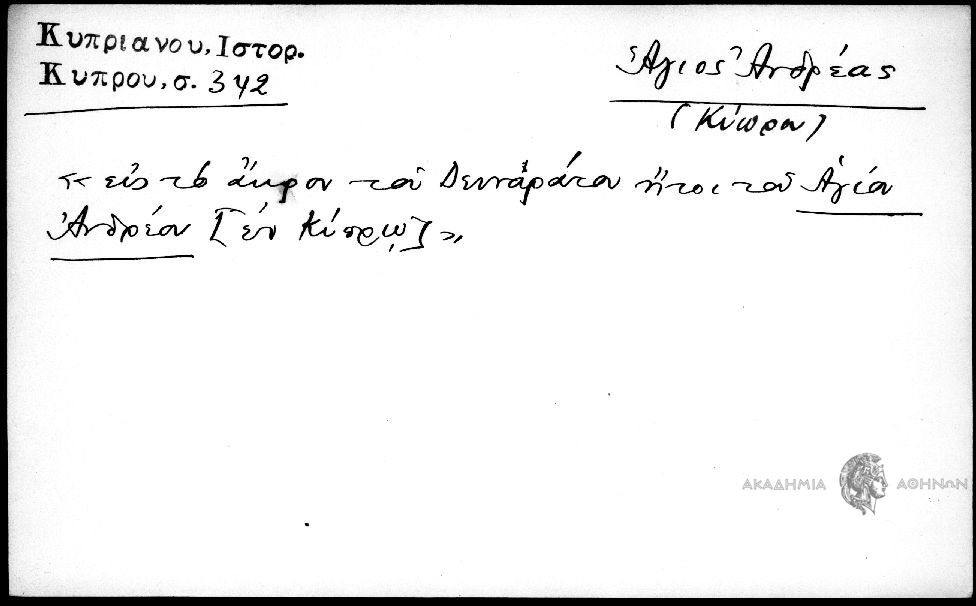 Κυπριανου, Ιστορ.
Κυπρου, σ. 342
Ἅγιος Ἀνδρέας
(Κύπρου)
«εἰς τὸ ἄκρον τοῦ Δενναράτου ἤτοι τοῦ Ἁγίου
Ἀνδρέου [ἐν Κύπρῳ]»
ΑΚΑΔΗΜΙΑ ΑΘΗΝΩΝ